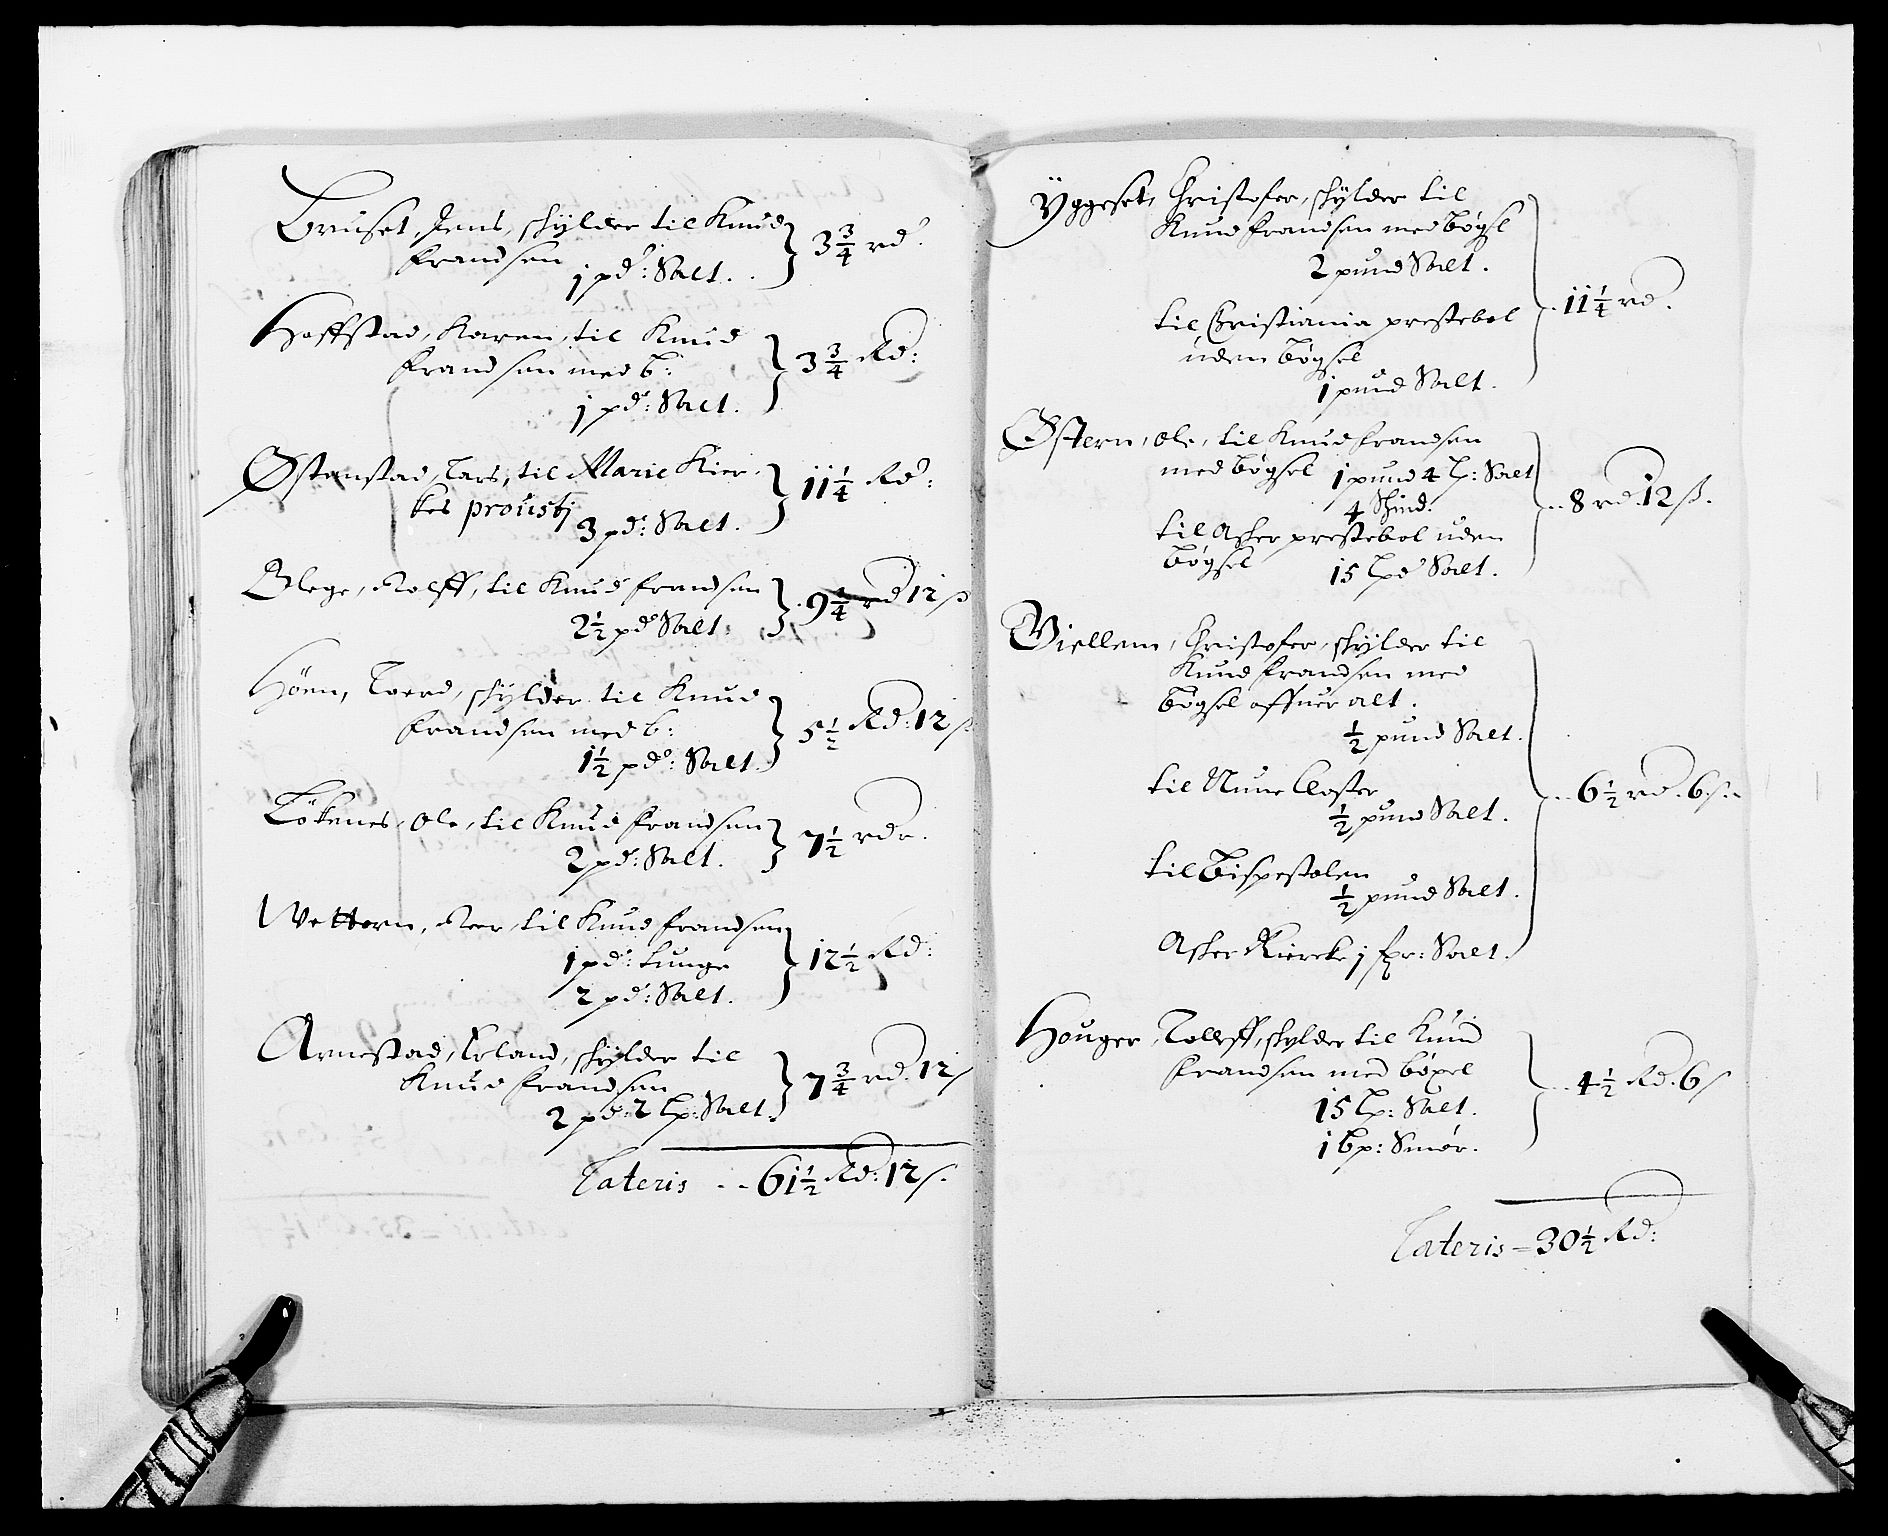 Bruset, Jens, skÿlder til Knud
frandsen
1 pd: Salt.
3¾ rd
Hoffstad, Karen, til Knud
frandsen med b:
1 pd: Salt.
3¾ Rd:
Østenstad, Lars, til Marie Kier-
kes proustj
3 pd: Salt.
11¼ Rd:
Blege, Rolff, til Knud frandsen
2½ pd Salt.
9¼ rd 12 ß
Höen, Toerd, skÿlder til Knud
frandsen med b:
1½ pd: Salt.
5½ Rd: 12 ß
Lökenes, Ole, til Knud frandsen
2 pd: Salt.
7½ rdr.
Wettern, Peer, til Knud frandsen
1 pd: tunge
2 pd: Salt.
12½ Rd:
Arnestad, Erland, skÿlder til
Knud frandsen
2 pd: 2 Lp: Salt.
7¾ rd. 12 ß
Lateris - - 61½ Rd: 12 ß.
Ÿggeset, Christofer, skÿlder til
Knud frandsen med bøgsl
2 pund Salt.
til Christiania prestebol
uden bøgsel
1 pund Salt.
11¼ rd.
Østern, Ole, til Knud frandsen
med bøgsel 1 pund 4 Lp: Salt
4 Skind.
til Asker prestebol uden
bøgsel 15 Lpd Salt.
8 rd. 12 ß.
Giellem, Christofer, skÿlder til
Knud frandsen med
bøgsel offuer alt.
½ pund Salt.
til Nune Closter
½ pund Salt.
til Bispestolen
½ pund Salt.
Asker Kiercke 1 fr: Salt.
6½ rd. 6 ß.
Houger, Tolleff, skylder til Knud
frandsen med böxel
15 Lp: Salt.
1 Bp: Smør.
4½ Rd. 6 ß
Lateris - 30½ Rd: